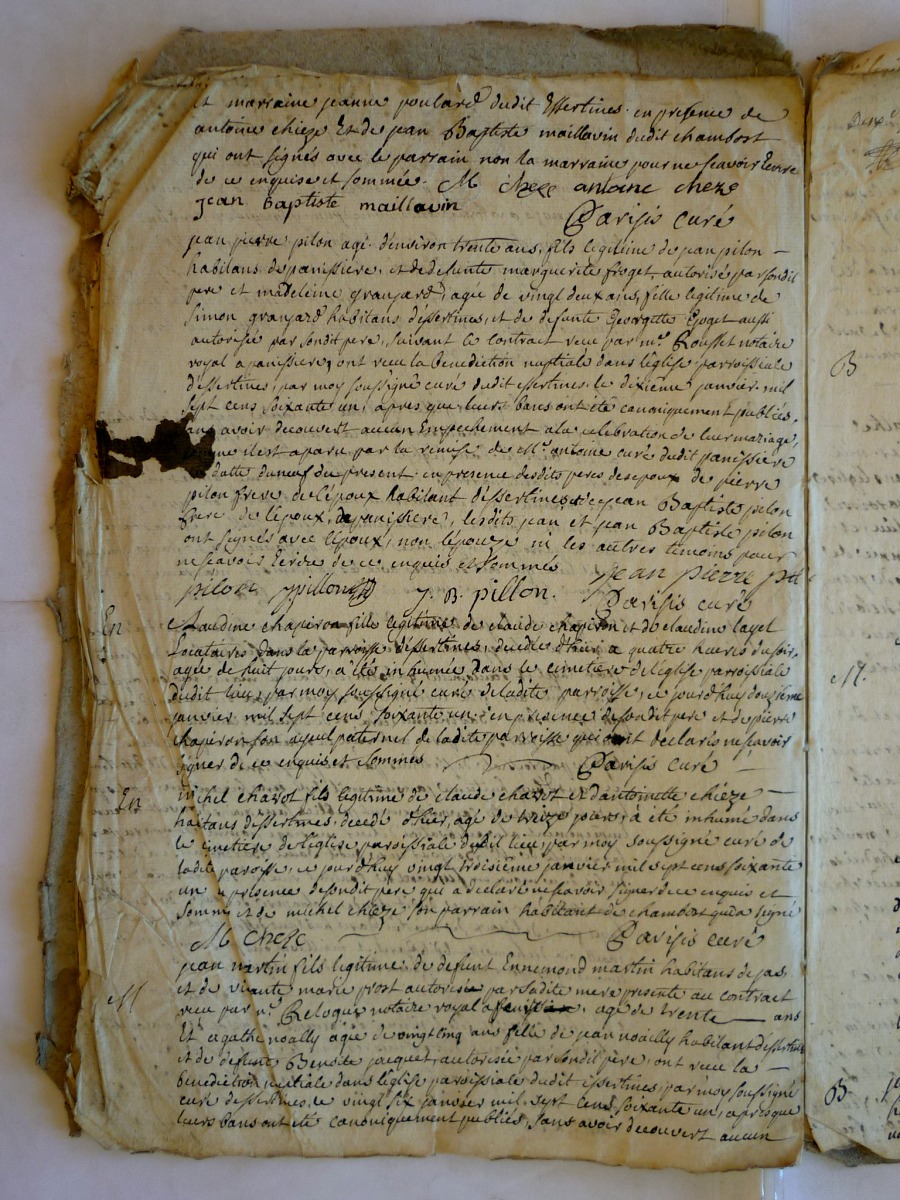 et marraine jeanne poulard dudit Essertines en presence de
antoine chieze Et de jean Baptiste maillavin dudit chambost
qui ont signés avec le parrain non la marraine pour ne scavoir Ecrire
de ce enquise et sommée. M cheze antoine cheze
jean Baptiste maillavin Parisis curé
jean pierre pilon agé d'environ trente ans, fils legitime de jean pilon
habitans de panissiere, et de defunte marguerite froget, autorisé par sondit
pere et madeleine granjard, agée de vingt deux ans, fille legitime de
simon granjard habitans d'essertines, et de defunte Georgette aussi
autorisée par sondit pere, suivant le contract receu par mr. Rousset notaire
royal a panissiere, ont receu la Benediction nuptiale dans l'eglise parroissiale
d'essertines, par moy soussigné curé dudit essertines, le dixieme janvier mil
sept cens soixante un, apres que leurs bans ont été canoniquement publiés,
avoir decouvert aucun Empechement a la celebration de leur mariage,
comme il est aparu par la remise de Mr. antoine curé dudit panissiere
datte du neuf du present en presence desdits peres des epoux de pierre
pilon frere de l'époux habitant d'essertines et de jean Baptiste pilon
frere de l'époux, de panissiere, lesdits jean et jean Baptiste pilon
ont signés avec l'époux, non l'épouze ni les autres temoins pour
ne scavoir Ecrire de ce enquis et sommés jean pierre
pilon jpillon J. B. pillon. Parisis curé
En Claudine chaperon fille legitime de claude chaperon et de claudine layel
Locataires dans la parroisse d'essertines, decedée d'hier a quatre heures du soir,
agée de huit jours, a été inhumée dans le cimetiere de l'eglise parroissiale
dudit lieu, par moy soussigné curé de ladite parroisse, ce jourd'huy douzieme
janvier mil sept cens soixante un, en presence de sondit pere et de pierre
chaperon son ayeul paternel de ladite parroisse qui ont declarés ne scavoir
signer de ce enquis et sommés Parisis curé
En michel chavot fils legitime de claude chavot et d'antoinette chieze
habitans d'essertines, decedé d'hier, agé de treize jours, a eté inhumé dans
le cimetiere de l'eglise paroissiale dudit lieu, par moy soussigné curé de
ladite paroisse, ce jourd'huy vingt troisieme janvier mil sept cens soixante
un presence de sondit pere qui a declaré ne scavoir signer de ce enquis et
sommé et de michel chieze son parrain habitant de chambost qui a signé
M Cheze Parisis curé
M jean martin fils legitime de defunt Ennemond martin habitans de jas
et de vivante marie prost autorisé par sadite mere presente au contract
receu par Mr. notaire royal a agé de trente ans
Et agathe noally agée de vingt cinq ans fille de jean noailly habitant d'essertines
et de defunte Benoite jacquet, autorisée par sondit pere, ont receu la
benediction nuptiale dans l'eglise paroissiale dudit essertines, par moy soussigné
curé d'essertines, le vingt six janvier mil sept cens soixante un, apres que
leurs bans ont été canoniquement publiés, sans avoir decouvert aucun
B
M.
B